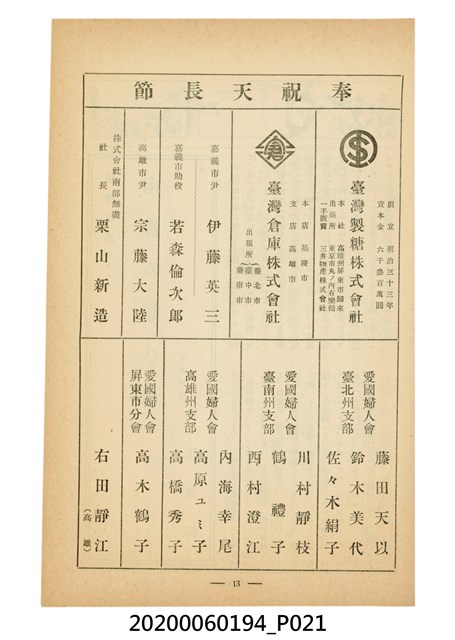 奉祝天長節
創立 明治三十三年
資本金 六千參百萬圓
臺灣製糖株式會社
本社 高雄州屏東市歸來
出張所 東京市丸ノ內有樂館
一手販賣 三井物產株式會社
臺灣倉庫株式會社
本店 基隆市
支店 高雄市
出張所 臺北市 臺中市 臺南市
嘉義市尹 伊藤英三
嘉義市助役 若森倫次郎
高雄市尹 宗藤大陸
株式會社南部無盡
社長 栗山新造
愛國婦人會
臺北州支部
藤田天以
鈴木美代
佐々木絹子
愛國婦人會
臺南州支部
川村靜枝
鶴禮子
西村澄江
愛國婦人會
高雄州支部
內海幸尾
高原ユミ子
高橋秀子
愛國婦人會
屏東市分會
高木鶴子
右田靜江
(高雄)
— 13 —
20200060194_P021